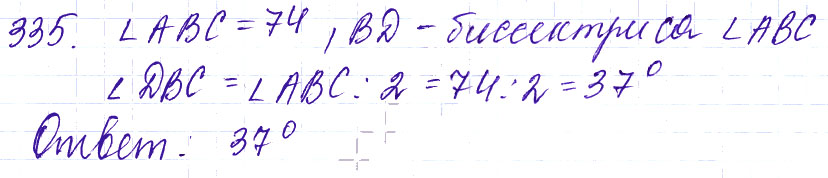 335. ∠ABC = 74, BD - биссектриса ∠ABC
∠DBC = ∠ABC : 2 = 74 : 2 = 37°
Ответ: 37°